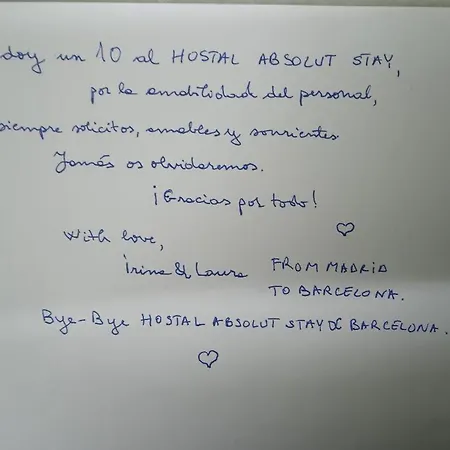 doy un 10 al HOSTAL ABSOLUT STAY,
por la amabilidad del personal,
siempre solicitos, amables y sonrientes
Jamás os olvidaremos.
¡Gracias por todo!
With love,
Irina & Laura FROM MADRID
TO BARCELONA.
Bye-Bye HOSTAL ABSOLUT STAY BARCELONA.